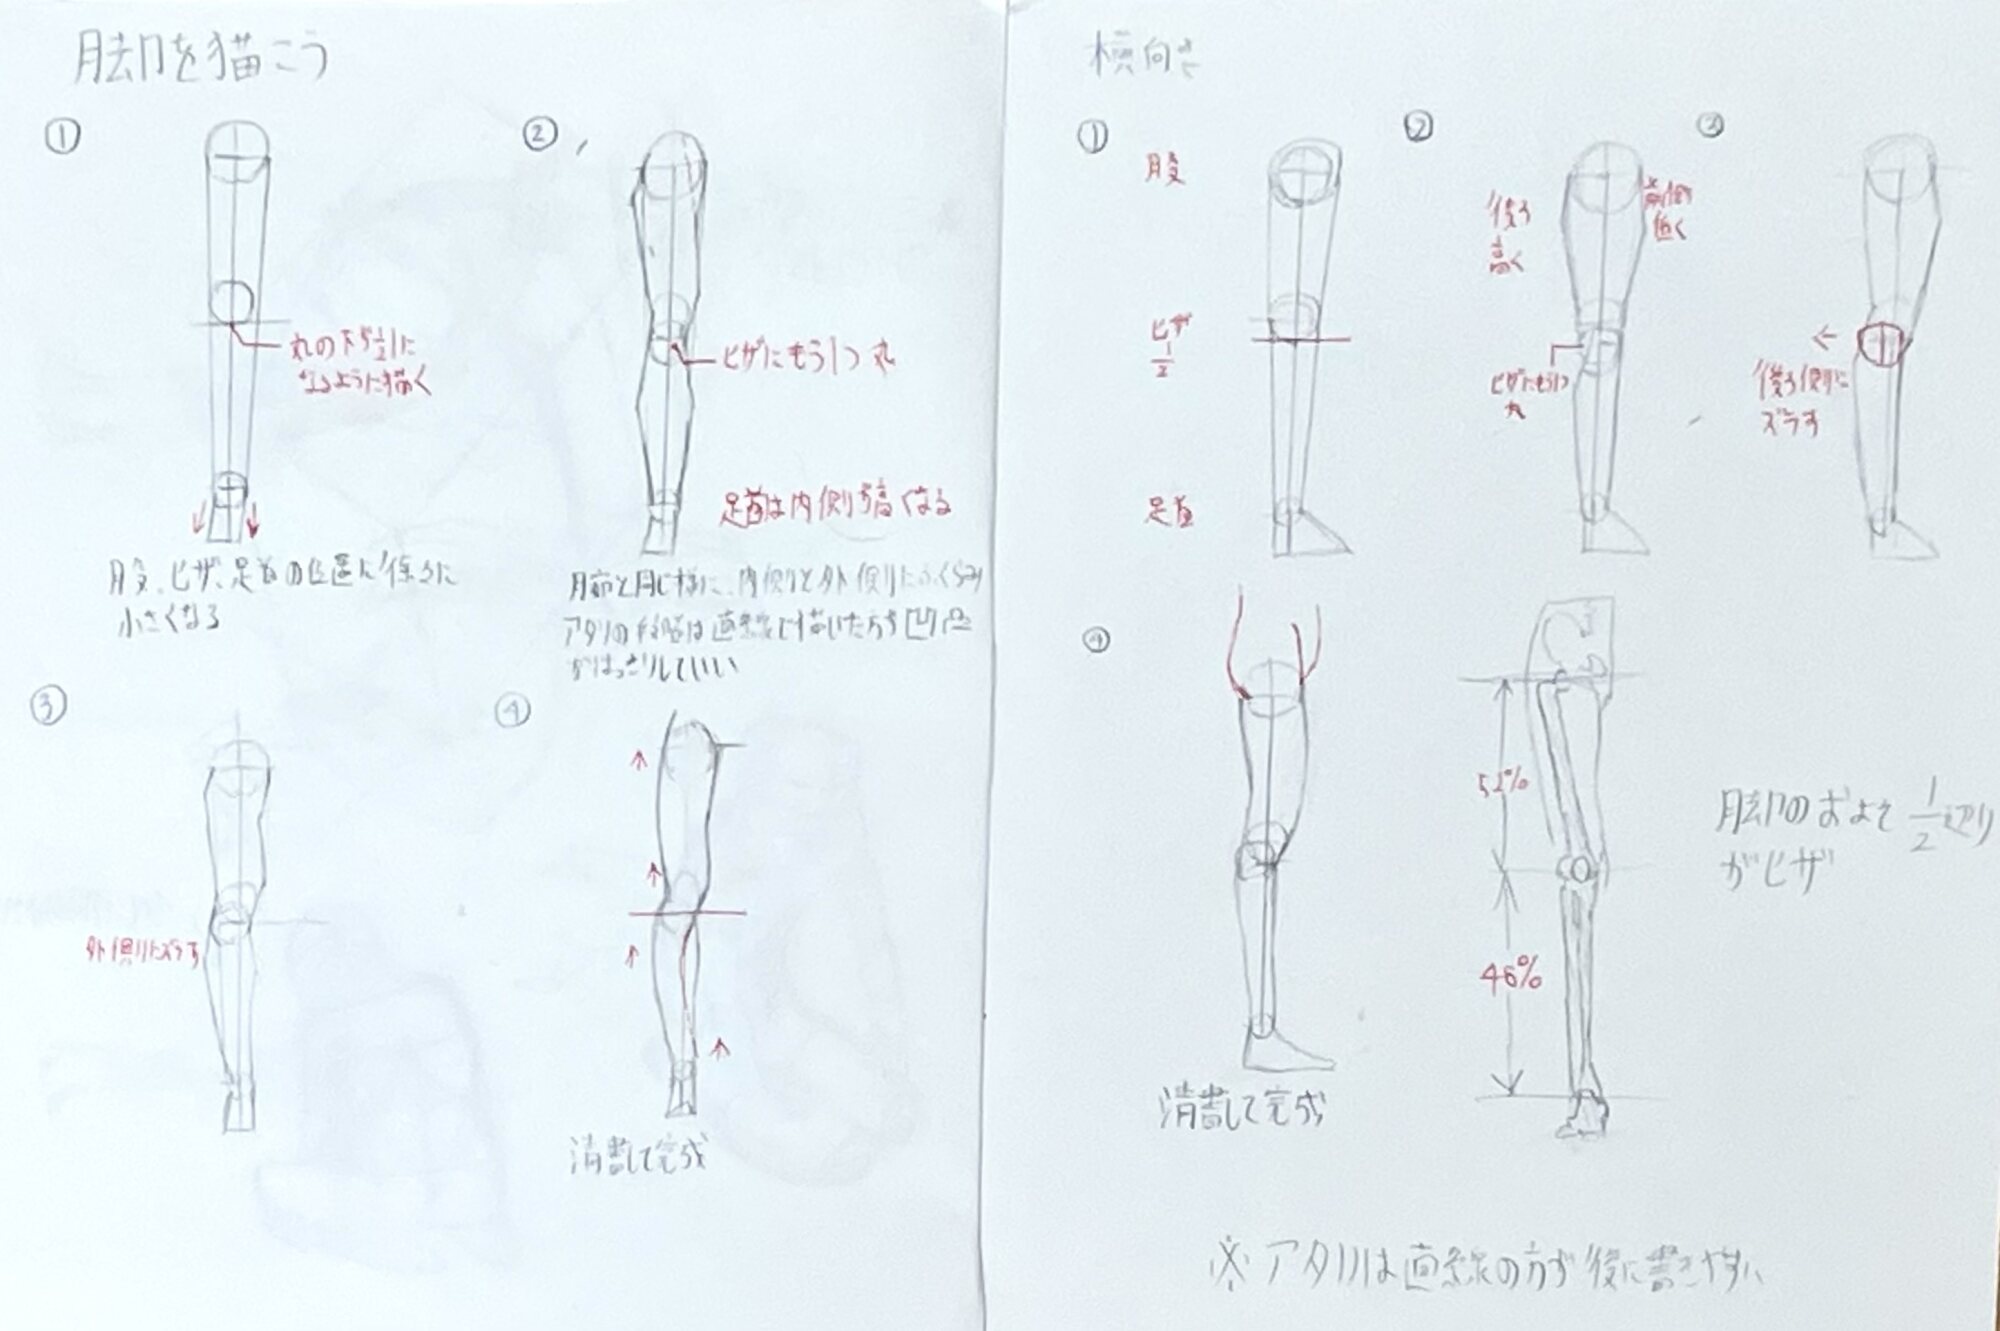 脚を描こう
①
丸の下が1/2に
なるように描く
股、ヒザ、足首の位置に徐々に
小さくなる
②
ヒザにもう1つ丸
足首は内側が高くなる
腕と同じ様に、内側と外側にふくらみ
アタリの段階は直線で描いた方が凹凸
がはっきりしていい
③
外側にズラす
④
清書して完成
横向き
①
股
ヒザ
1/2
足首
②
後ろ
高く
前側
低く
ヒザにもう1つ
丸
③
←
後ろ側に
ズラす
④
清書して完成
52%
46%
脚のおよそ1/2辺り
がヒザ
※アタリは直線の方が後に書きやすい